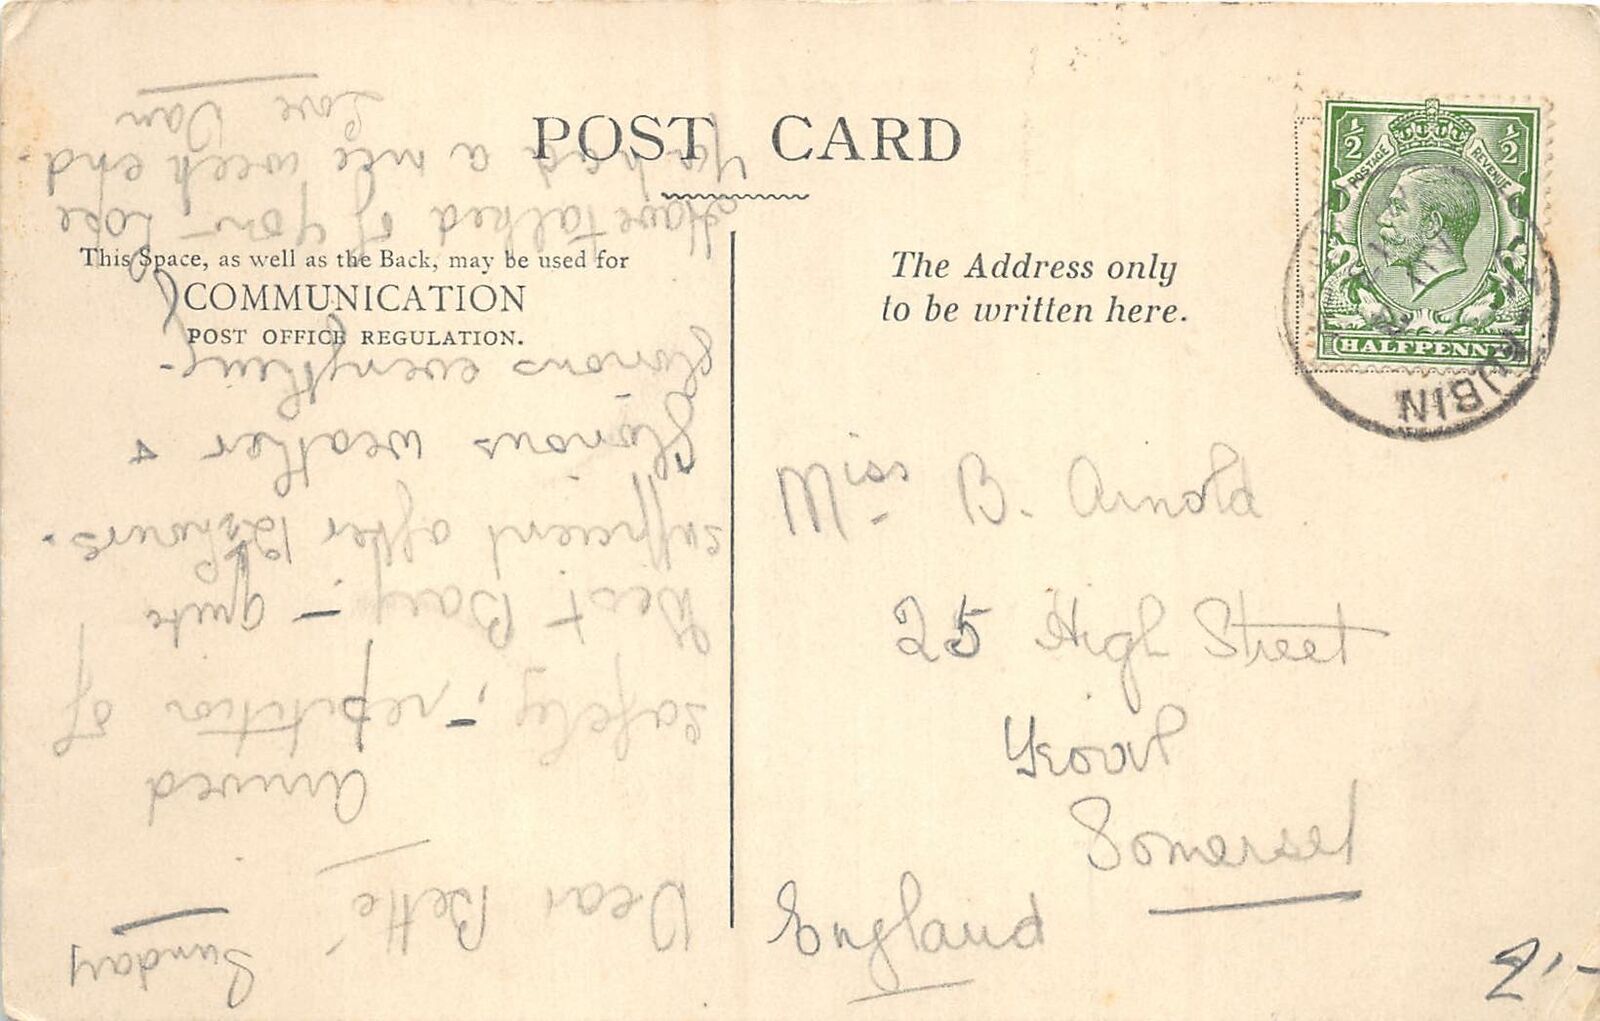 POST CARD
This Space, as well as the Back, may be used for
COMMUNICATION
POST OFFICE REGULATION.
The Address only
to be written here.
POSTAGE REVENUE
½ ½
HALFPENNY
Miss B. Arnold
25 High Street
Yeovil
Somerset
England
2'-
Sunday
Dear Bette
arrived
safely, - repitition of
West Bay - quite
sufficient after 12 hours.
Glorious weather &
glorious everything.
Have talked of you - hope
you had a nice week end.
Love Dan